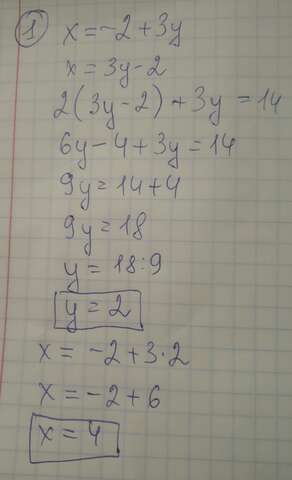 ① x=-2+3y
x=3y-2
2(3y-2)+3y=14
6y-4+3y=14
9y=14+4
9y=18
y=18:9
y=2
x=-2+3·2
x=-2+6
x=4